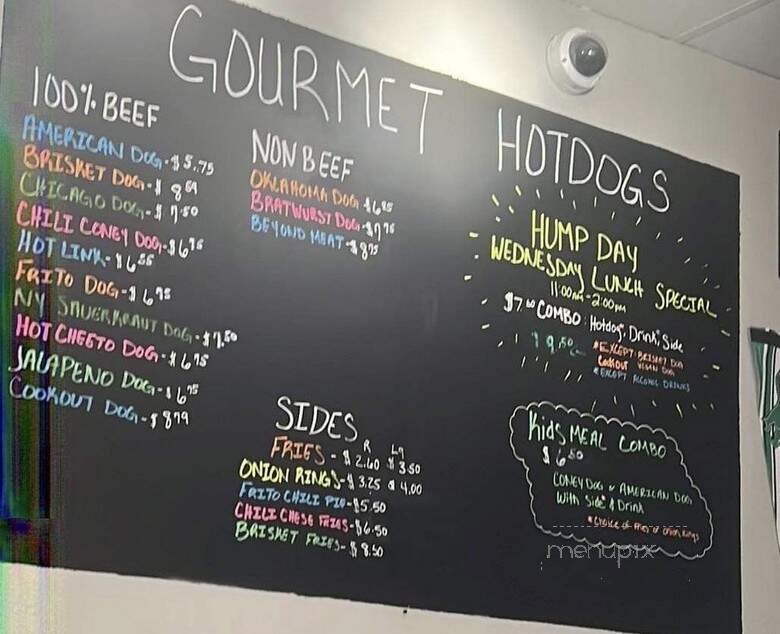 GOURMET HOTDOGS
100% BEEF
AMERICAN DOG - $5.75
BRISKET DOG - $8
CHICAGO DOG - $7.50
CHILI CONEY DOG - $6
HOT LINK - $6
FRITO DOG - $6.95
NY SAUERKRAUT DOG - $7.50
HOT CHEETO DOG - $6.95
JALAPENO DOG - $6.95
COOKOUT DOG - $8
NON BEEF
OKLAHOMA DOG $6
BRATWURST DOG - $7
BEYOND MEAT - $8
SIDES
R LG
FRIES - $2.60 $3.50
ONION RINGS - $3.25 $4.00
FRITO CHILI PIE - $5.50
CHILI CHESE FRIES - $6.50
BRISKET FRIES - $8.50
HUMP DAY
WEDNESDAY LUNCH SPECIAL
11:00am - 2:00pm
$7.00 COMBO: Hotdog, Drink, Side
$9.50
*EXCEPT BRISKET DOG
Cookout DOG
*EXCEPT ALCOHOL DRINKS
Kids MEAL COMBO
$6.50
CONEY DOG or AMERICAN DOG
With Side & Drink
*Choice of Fries or Onion Rings
menupix